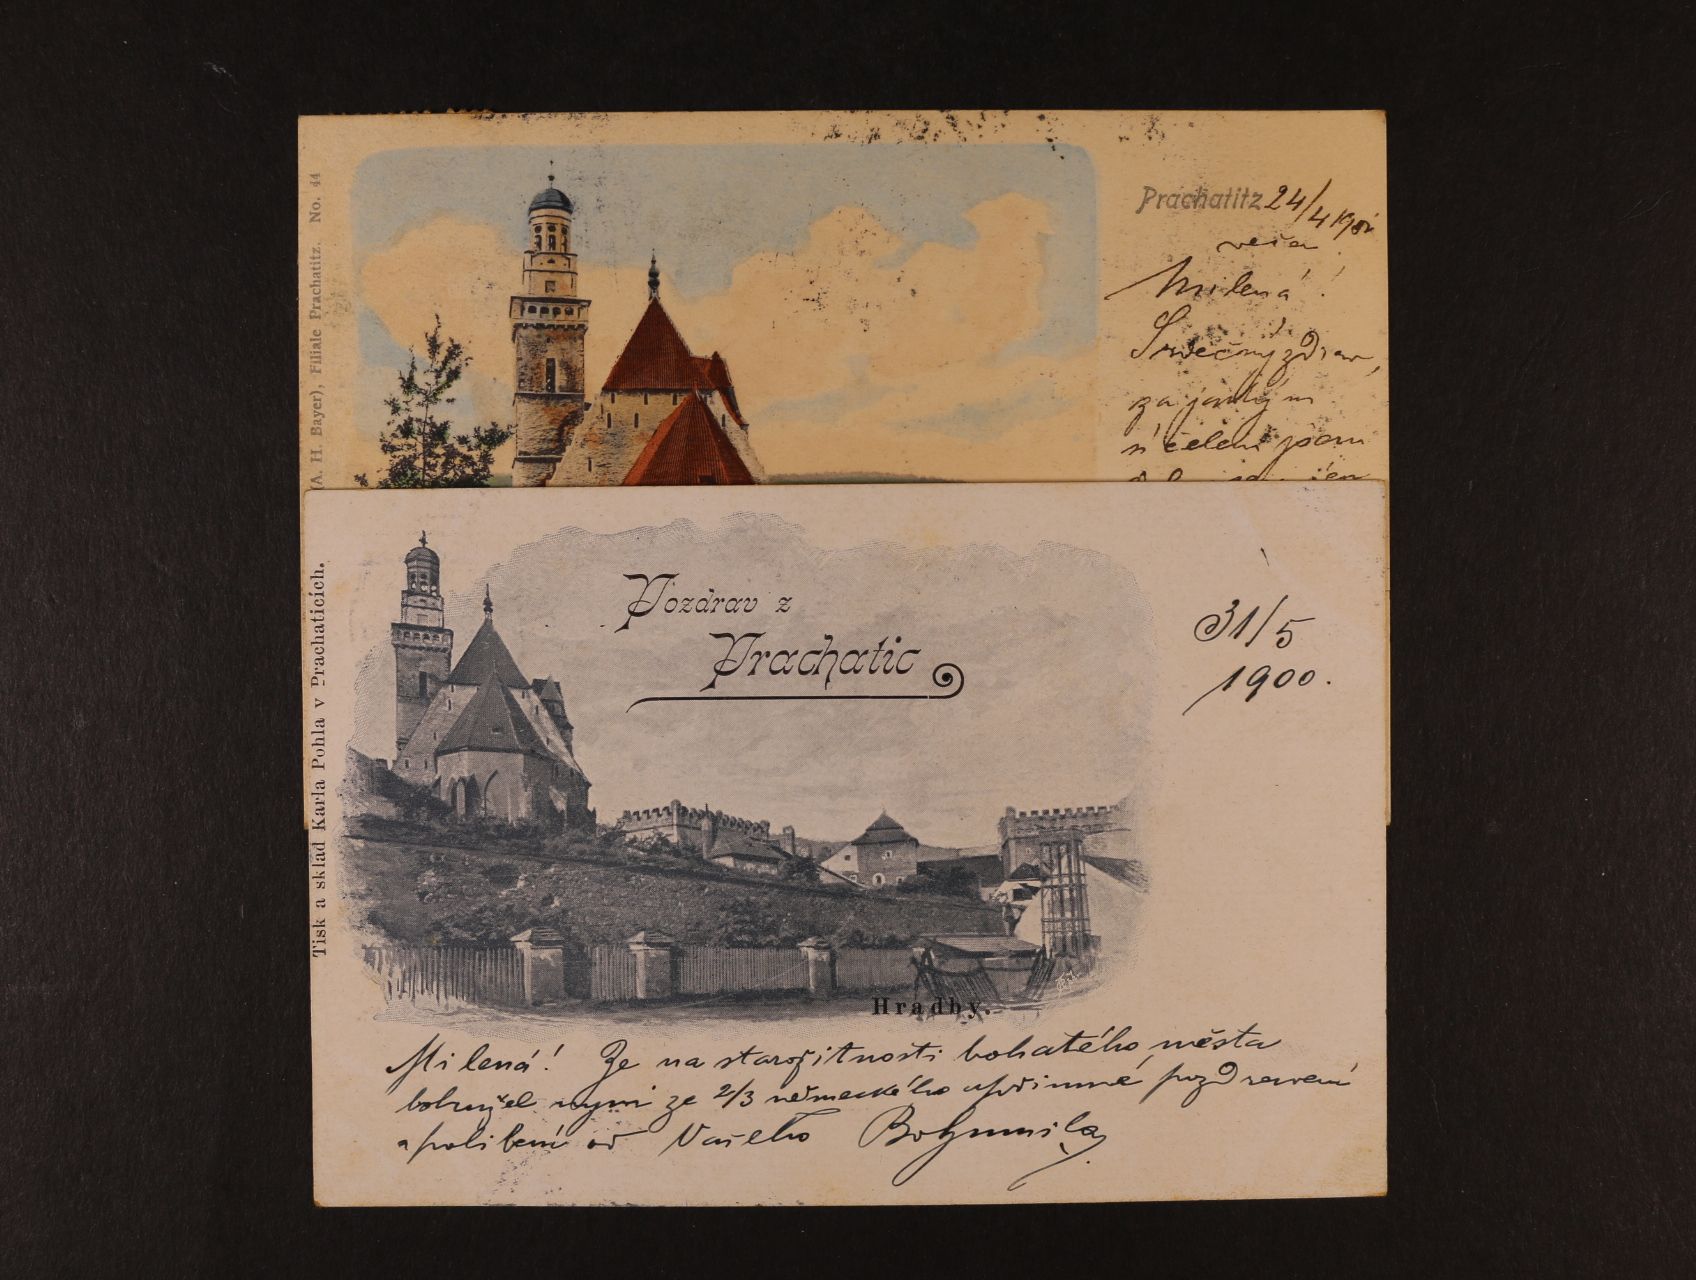 (A. H. Bayer), Filiale Prachatitz. No. 44
Prachatitz 24/4 190
Milená!
Srdečný zdrav
za jakým
účelem jsem
Tisk a sklad Karla Pohla v Prachaticích.
Pozdrav z
Prachatic
31/5
1900.
Hradby.
Milená! Ze na starožitnosti bohatého města
bohužel nyní ze 2/3 německého upřímné pozdravení
a políbení od Vašeho Bohumila